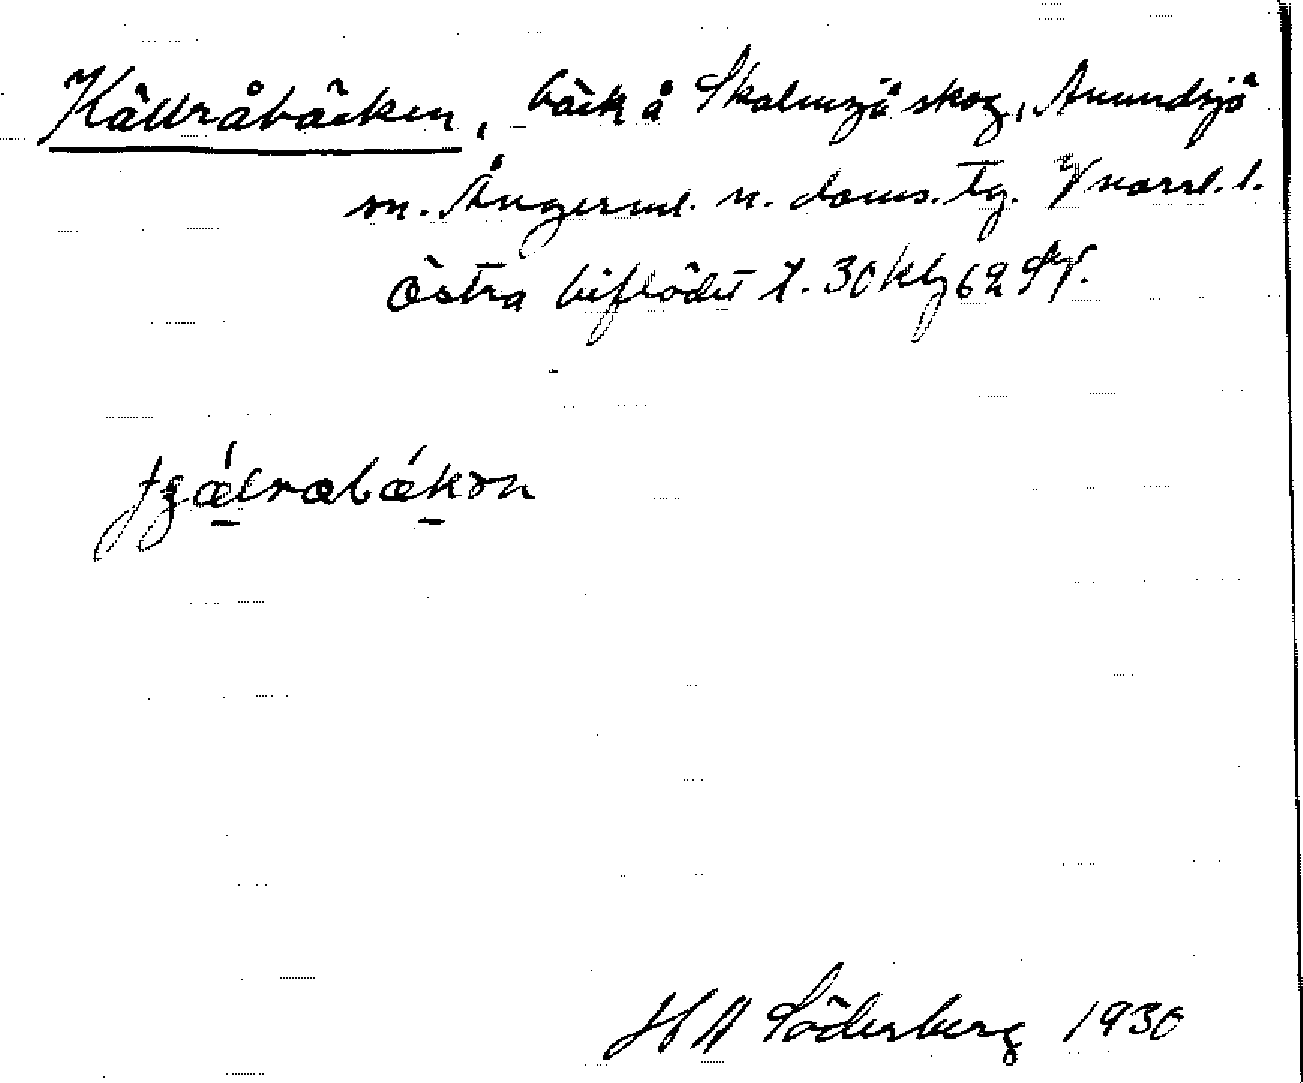 Källråbäcken, bäck å Skalmsjö skog, Anundsjö
sn. Ångerml. n. doms. tg. Vnorrl. l.
Östra biflödet t. 30 kbg 62 SV.
HA Söderberg 1930